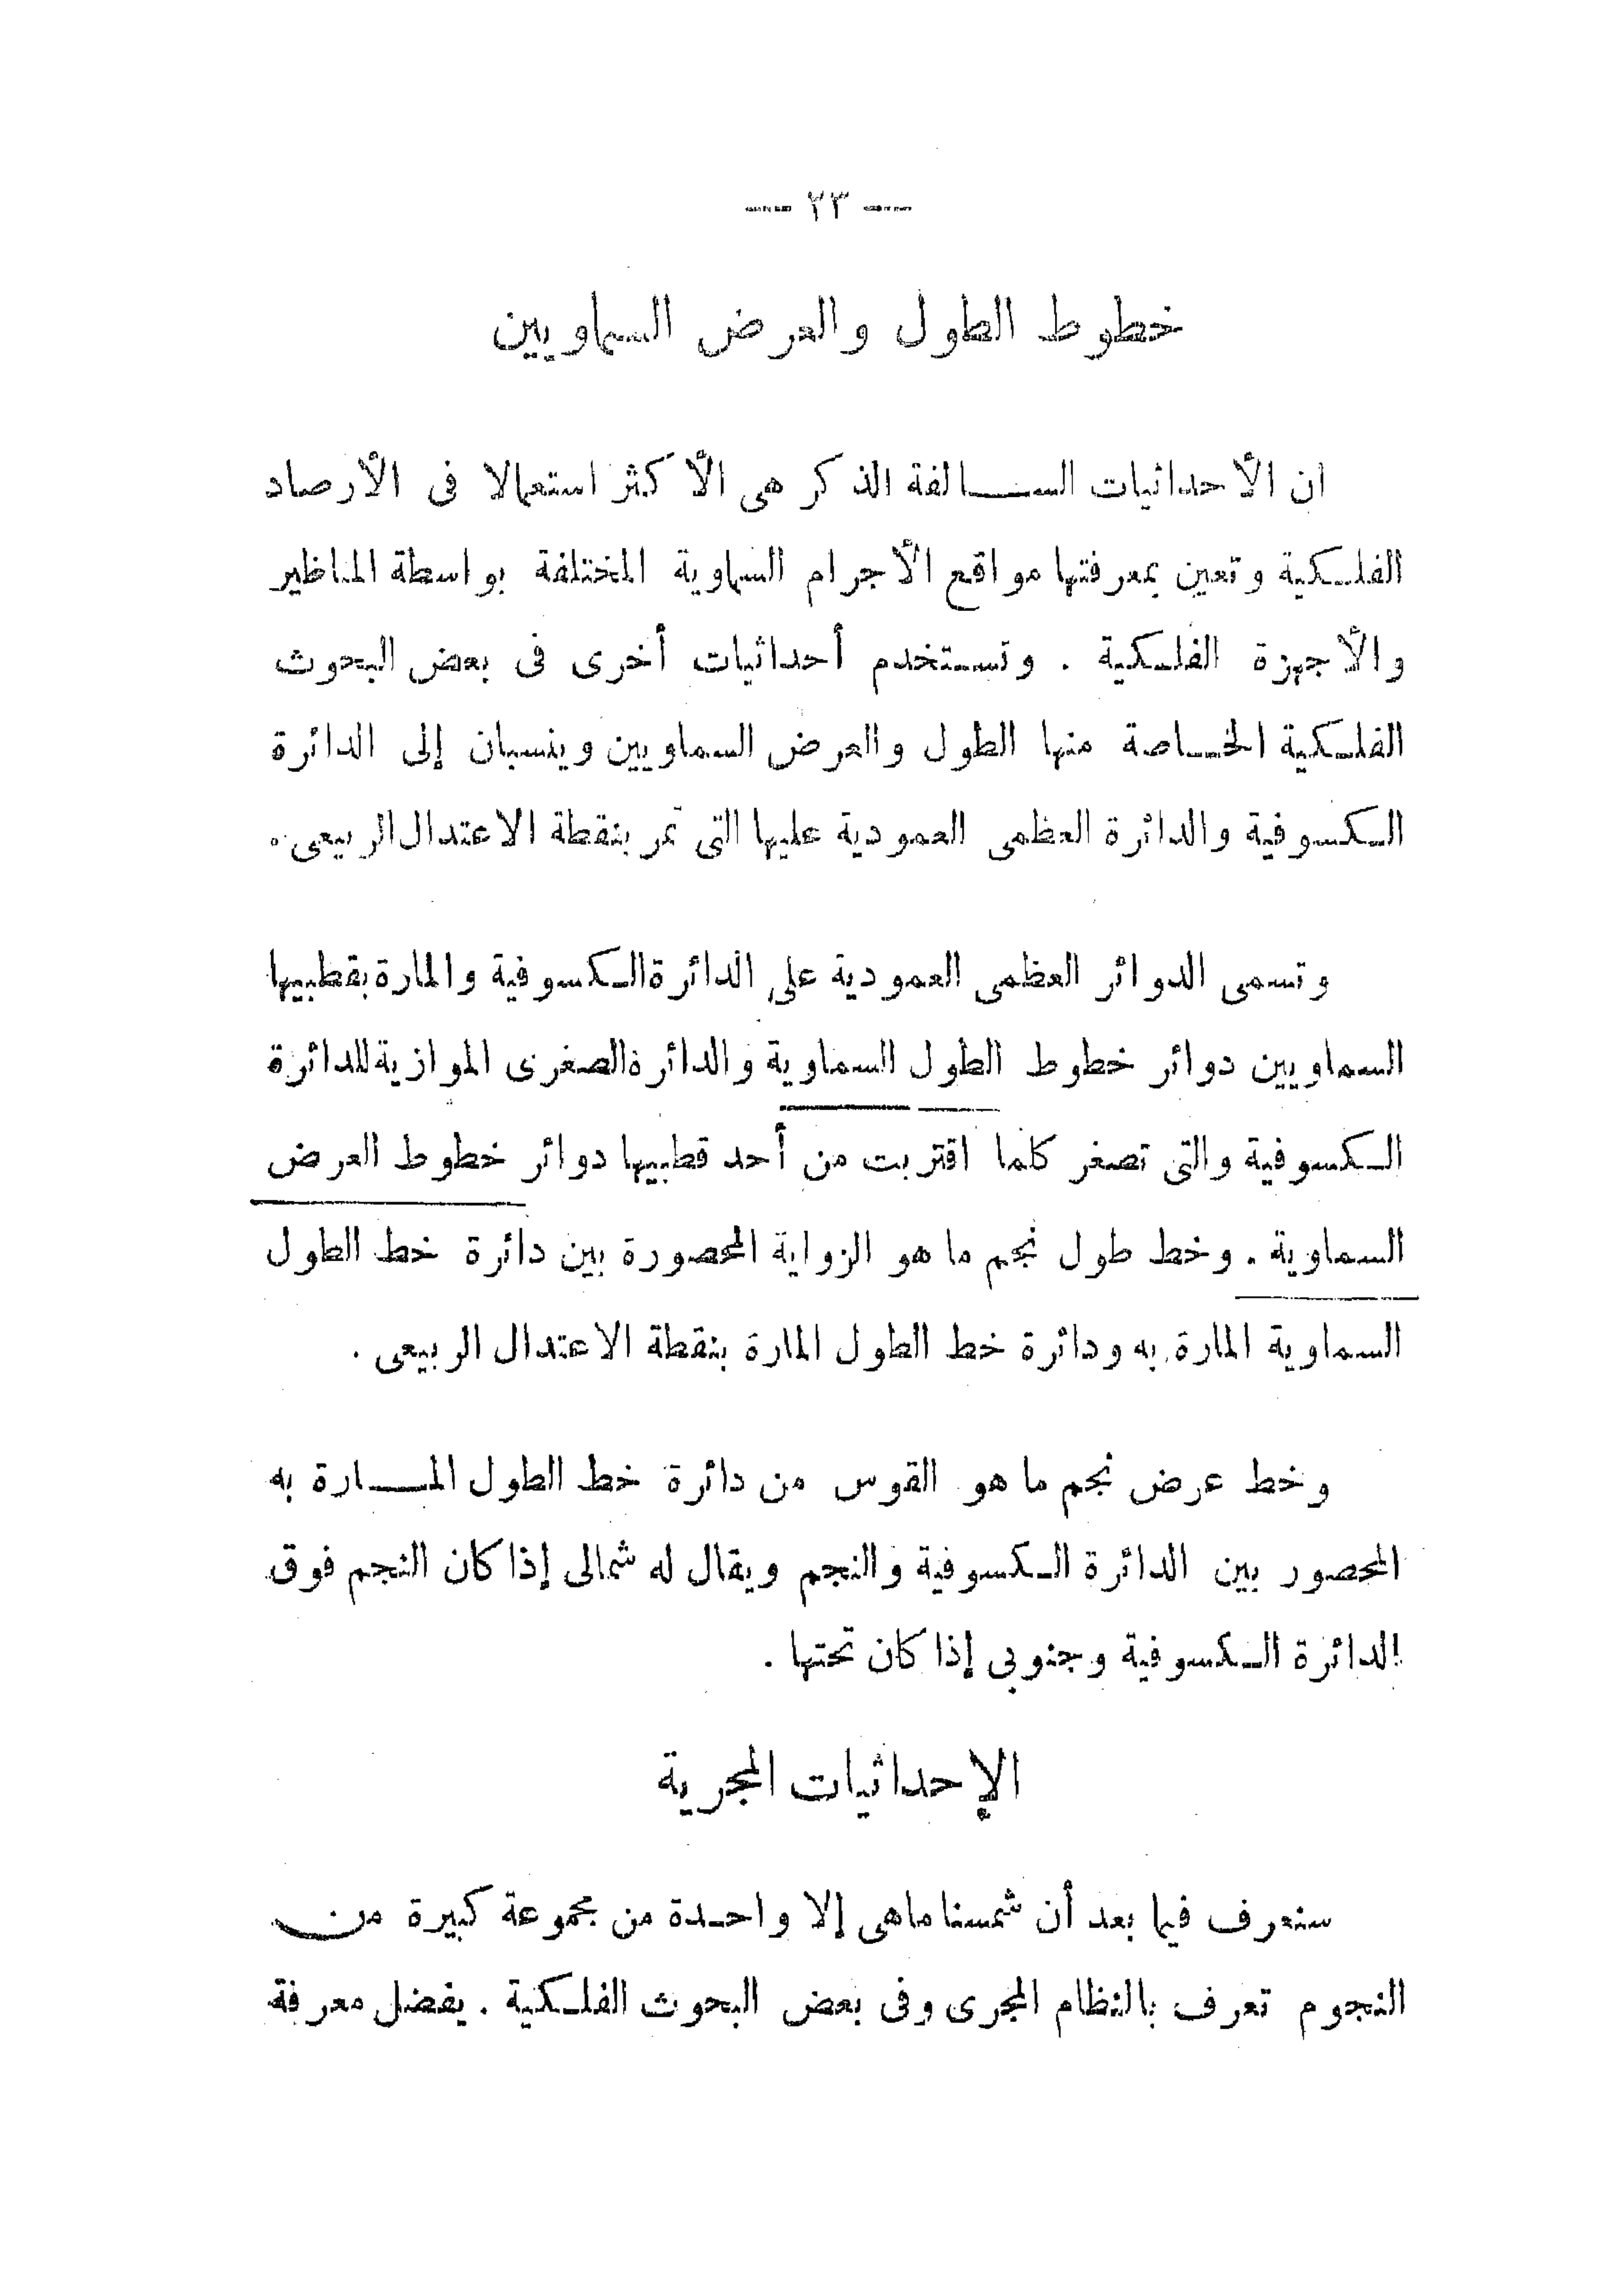 — ٢٣ —
خطوط الطول والعرض السماويين
ان الأحداثيات السالفة الذكر هى الأكثر استعمالا فى الأرصاد
الفلكية وتعين بمعرفتها مواقع الأجرام السماوية المختلفة بواسطة المناظير
والأجهزة الفلكية . وتستخدم أحداثيات أخرى فى بعض البحوث
الفلكية الخاصة منها الطول والعرض السماويين وينسبان إلى الدائرة
الكسوفية والدائرة العظمى العمودية عليها التى تمر بنقطة الاعتدال الربيعى .
وتسمى الدوائر العظمى العمودية على الدائرة الكسوفية والمارة بقطبيها
السماويين دوائر خطوط الطول السماوية والدائرة الصغرى الموازية للدائرة
الكسوفية والتى تصغر كلما اقتربت من أحد قطبيها دوائر خطوط العرض
السماوية . وخط طول نجم ما هو الزواية المحصورة بين دائرة خط الطول
السماوية المارة به ودائرة خط الطول المارة بنقطة الاعتدال الربيعى .
وخط عرض نجم ما هو القوس من دائرة خط الطول المارة به
المحصور بين الدائرة الكسوفية والنجم ويقال له شمالى إذا كان النجم فوق
الدائرة الكسوفية وجنوبى إذا كان تحتها .
الإحداثيات المجرية
سنعرف فيما بعد أن شمسنا ماهى إلا واحدة من مجموعة كبيرة من
النجوم تعرف بالنظام المجرى وفى بعض البحوث الفلكية . يفضل معرفة